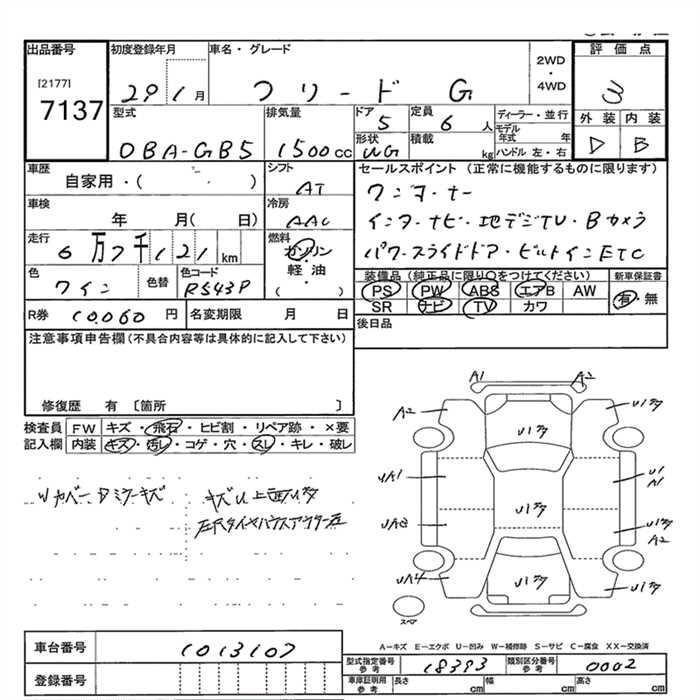 出品番号 初度登録年月 車名・グレード 評価点
[2177]
7137
29 1月 フリード G
2WD
・
4WD
3
型式 排気量 ドア 定員 ディーラー・並行 外装 内装
DBA-GB5 1500cc 5 6人
モデル年式 年
形状 積載
WG kg ハンドル 左・右 D B
車歴 シフト セールスポイント (正常に機能するものに限ります)
自家用・( ) AT ワンオーナー
車検 冷房
年 月( 日) AAC インターナビ・地デジTV・Bカメラ
走行 燃料
6万7千121km ガソリン・軽油・( ) パワースライドドア・ビルトインETC
色 色替 色コード 装備品(純正品に限り○をつけてください) 新車保証書
ワイン R543P PS PW ABS エアB AW 有・無
SR ナビ TV カワ
R券 10,060円 名変期限 月 日 後日品
注意事項申告欄(不具合内容等は具体的に記入して下さい)
修復歴 有 〔箇所 〕
検査員 FW キズ・飛石・ヒビ割・リペア跡・×要
記入欄 内装 キズ・汚レ・コゲ・穴・スレ・キレ・破レ
A1 A2
A2 U1キタ
U1キタ
UA1 U1 A1
U1キタ
UA2 U1キタ A2
UA4 U1キタ U1キタ
スペア
A-キズ E-エクボ U-凹み W-補修跡 S-サビ C-腐食 XX-交換済
車台番号 1013107
型式指定番号 参考 18393 類別区分番号 参考 0002
登録番号
車庫証明用 参考 長さ cm 幅 cm 高さ cm